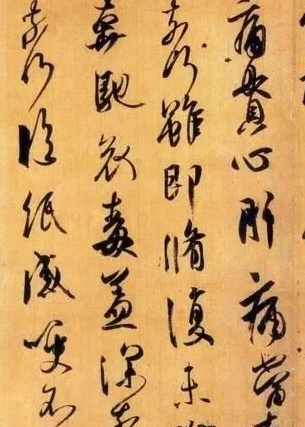 痛貫心肝痛當奈
奈何雖即脩復未
奔馳哀毒益深奈
奈何臨紙感哽不